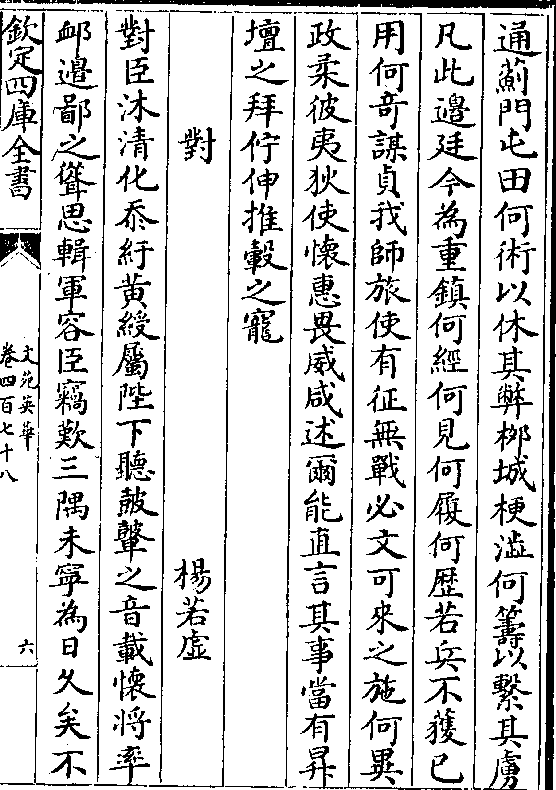 通薊門屯田何術以休其弊桞城梗澁何籌以繫其虜
凡此邉廷今為重鎮何經何見何履何歴若兵不獲已
用何竒謀貞我師旅使有征無戰必文可來之施何異
政柔彼夷狄使懐惠畏威咸述爾能直言其事當有昇
壇之拜佇伸推轂之寵
對
楊若虚
對臣沐清化忝紆黃綬屬陛下聽鼓鼙之音載懐將率
邺邉鄙之聳思輯軍容臣竊歎三隅未寧為日久矣不
欽定四庫全書
文苑英華
卷四百七十八
六